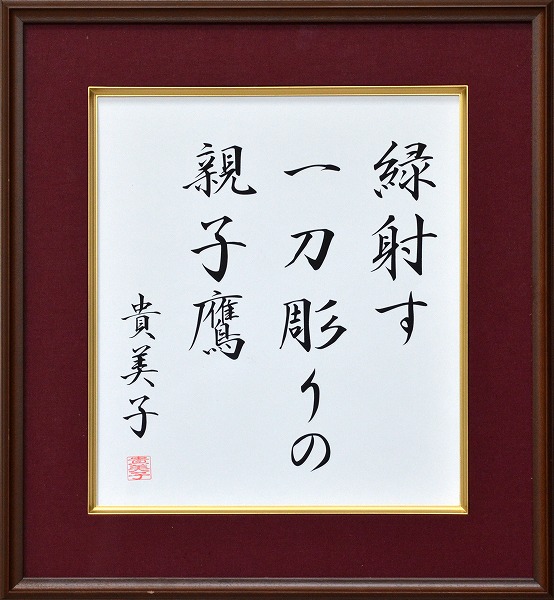 緑射す
一刀彫りの
親子鷹
貴美子
貴美子